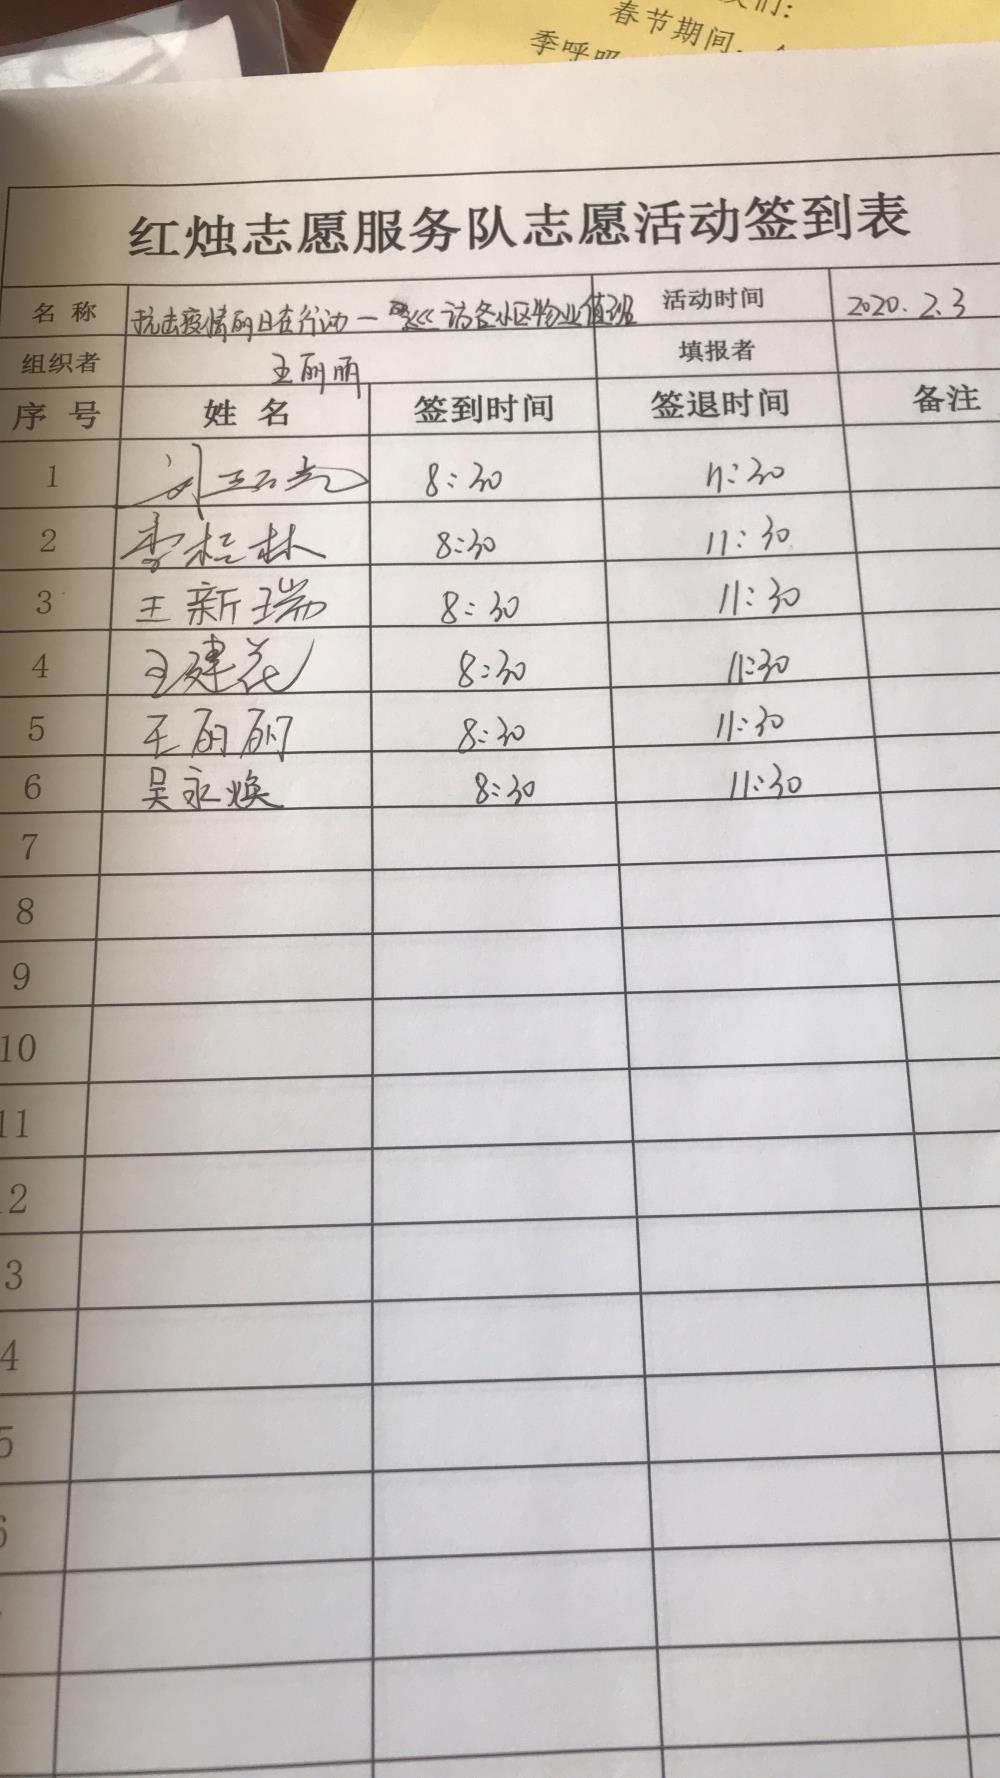 们:
春节期间,
季呼吸
红烛志愿服务队志愿活动签到表
名 称 抗击疫情的日夜行动一 访各小区物业值班 活动时间 2020.2.3
组织者 王丽丽 填报者
序 号 姓 名 签到时间 签退时间 备注
1 刘 8:30 11:30
2 李桂林 8:30 11:30
3 王新瑞 8:30 11:30
4 王建花 8:30 11:30
5 王丽丽 8:30 11:30
6 吴永焕 8:30 11:30
7
8
9
10
11
2
3
4
5
6